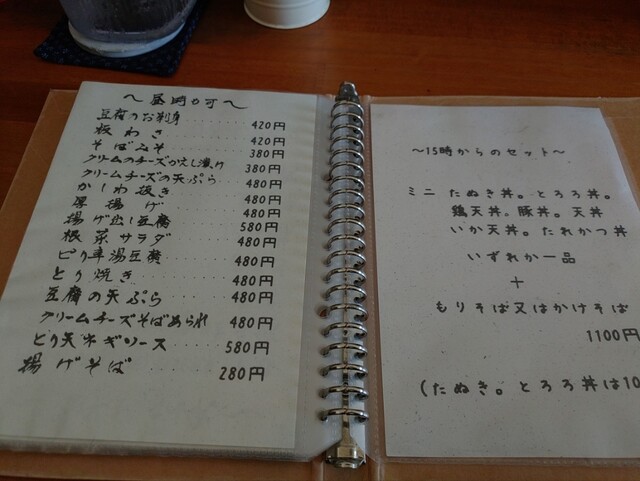 豆腐のお刺身 ········ 420円
板わさ ········ 420円
そばみそ ········ 380円
クリームのチーズかえし漬け 380円
クリームチーズの天ぷら ···· 480円
かしわ抜き ········ 480円
厚揚げ ········ 480円
揚げ出し豆腐 ······ 580円
根菜サラダ ······ 480円
ピリ辛湯豆腐 ······ 480円
とり焼き ········ 480円
豆腐の天ぷら ······ 480円
クリームチーズそばあられ ·· 480円
とり天ネギソース ···· 580円
揚げそば ········ 280円
〜15時からのセット〜
ミニ たぬき丼。とろろ丼。
鶏天丼。豚丼。天丼
いか天丼。たれかつ丼
いずれか一品
+
もりそば又はかけそば
1100円
(たぬき。とろろ丼は10